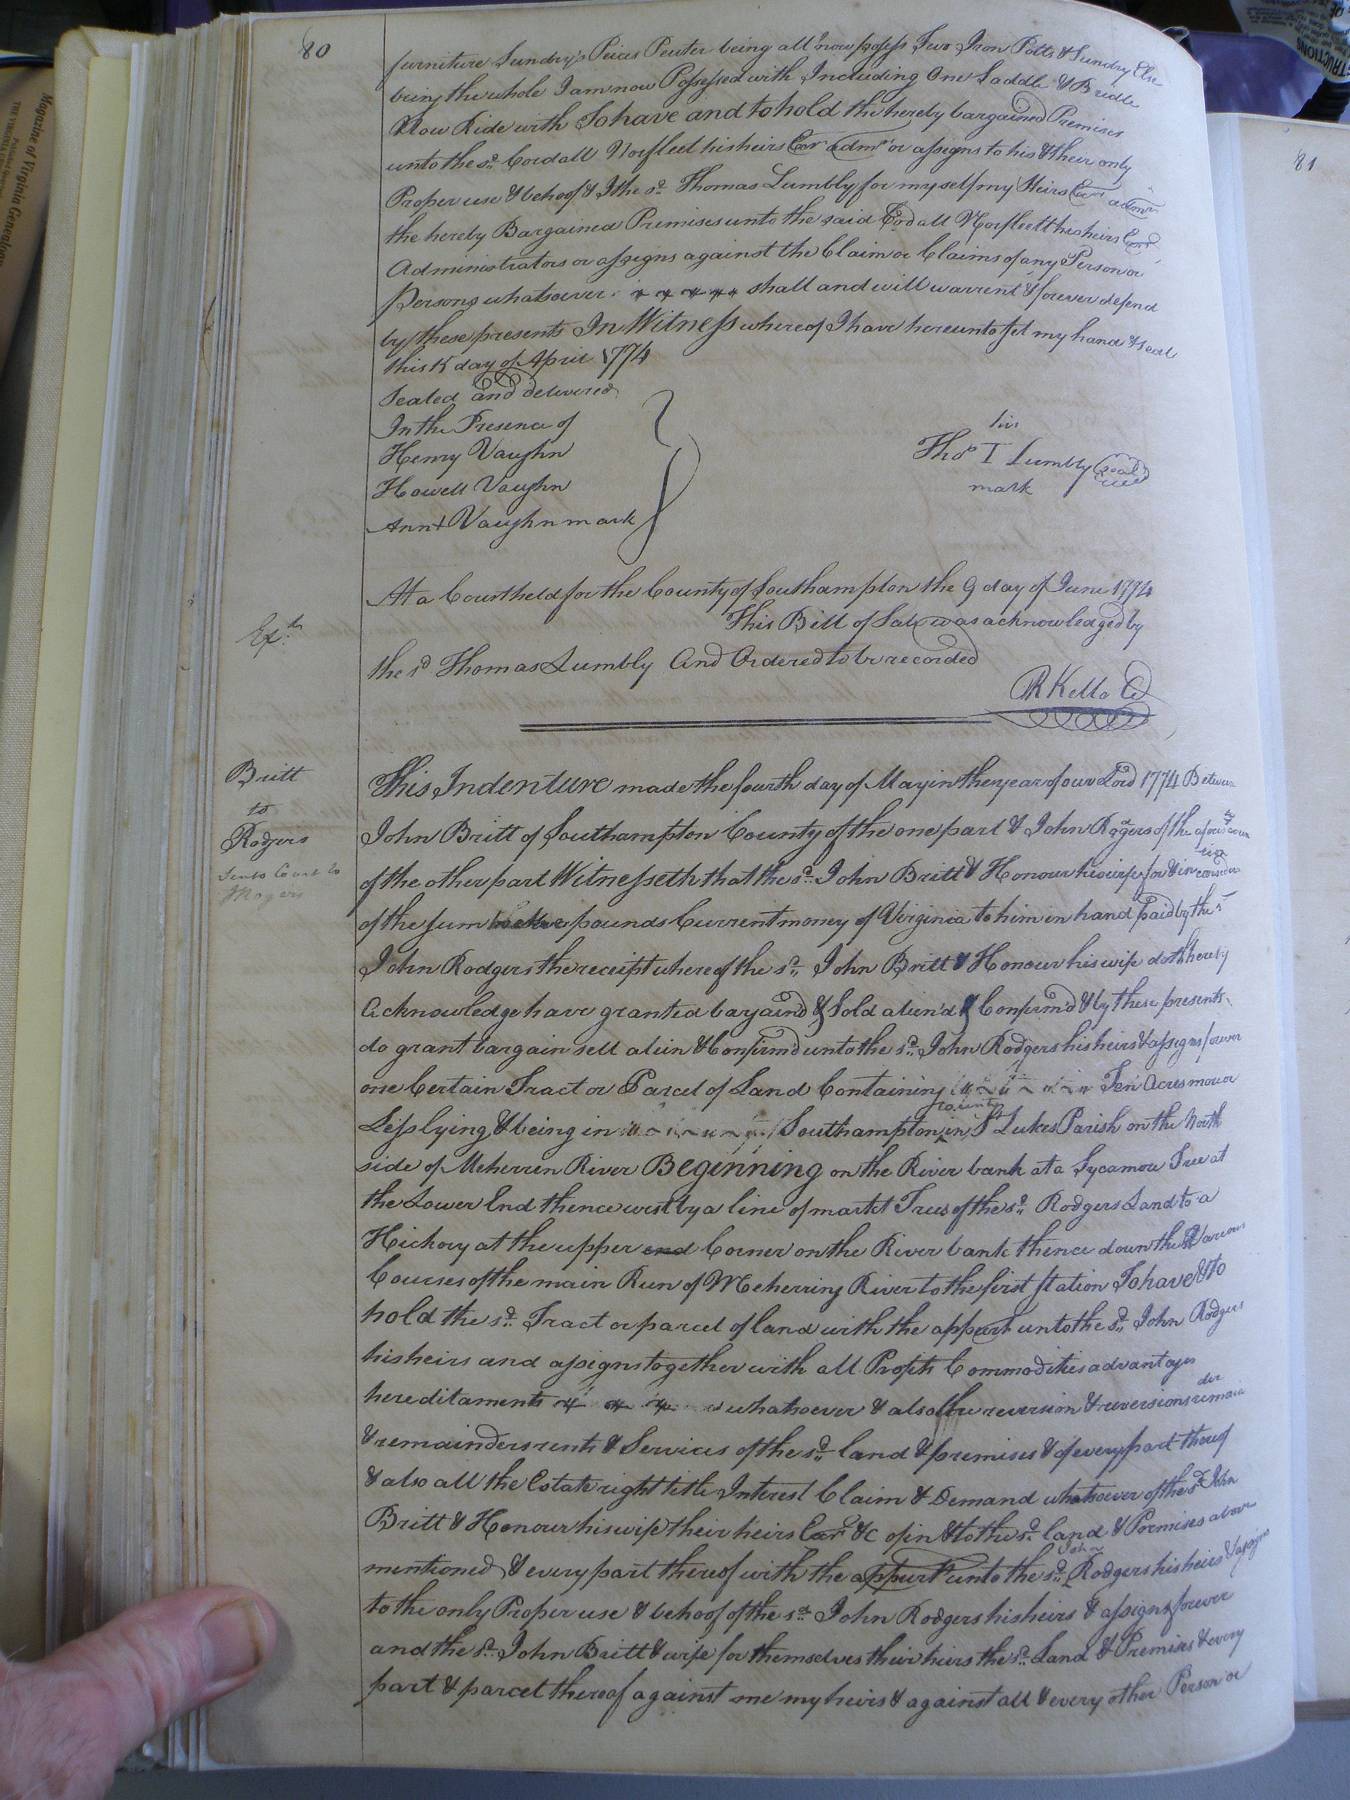 80
furniture Sundry's Peices Pewter being all now possess Two Iron Potts & Sundry Else
being the whole I am now Possessed with Including One Saddle & Bridle
Now Ride with To have and to hold the hereby bargained Premises
unto the sd. Cordall Norfleet his heirs Exr admr or assigns to his & their only
Proper use & behoof & I the sd. Thomas Lumbly for myself my Heirs Exr admr
the hereby Bargained Premises unto the said Cordall Norfleet his heirs Exrs
Administrators or assigns against the Claim or Claims of any Person or
Persons whatsoever shall and will warrent & forever defend
by these presents In Witness whereof I have hereunto set my hand & seal
this 15 day of April 1774
Sealed and delivered
In the Presence of
Henry Vaughn
Howell Vaughn
Ann + Vaughn mark
his
Thos T Lumbly seal
mark
At a Court held for the County of Southampton the 9 day of June 1774
This Bill of Sale was acknowledged by
the sd Thomas Lumbly And Ordered to be recorded
R Kello C
Britt
to
Rodgers
This Indenture made the fourth day of May in the year of our Lord 1774 Between
John Britt of Southampton County of the one part & John Rogers of the aforesd
of the other part Witnesseth that the sd. John Britt & Honour his wife for & in
of the sum twelve pounds Current money of Virginia to him in hand paid by the sd
John Rodgers the receipt whereof the sd. John Britt & Honour his wife doth hereby
Acknowledge have granted bargaind & Sold alien'd & Confirm'd & by these presents
do grant bargain sell alien & Confirmd unto the sd. John Rodgers his heirs & assigns forever
one Certain Tract or Parcel of Land Containing Ten Acres more or
Less lying & being in Southampton county in St Lukes Parish on the North
side of Meherren River Beginning on the River bank at a Sycamore Tree at
the Lower End thence west by a line of markt Trees of the sd. Rodgers Land to a
Hickory at the upper end Corner on the River bank thence down the Various
Courses of the main Run of Meherring River to the first station To have & to
hold the sd. Tract or parcel of land with the appurt unto the sd. John Rodgers
his heirs and assigns together with all Profits Commodities advantages
hereditaments whatsoever & also the reversion & reversions remainder
& remainders rents & Services of the sd. land & premises & of every part thereof
& also all the Estate right title Interest Claim & Demand whatsoever of the sd John
Britt & Honour his wife their heirs Exrs &c of in & to the sd. land & Premises above
mentioned & every part thereof with the appurts unto the sd. John Rodgers his heirs & assigns
to the only Proper use & behoof of the sd. John Rodgers his heirs & assigns forever
and the sd. John Britt & wife for themselves their heirs the sd. Land & Premises & every
part & parcel thereof against me my heirs & against all & every other Person or
81
Magazine of Virginia Genealogy